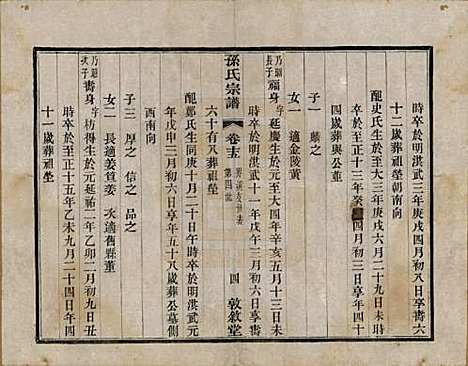 時卒於明洪武三年庚戌四月初八日享壽六
十二歲葬祖塋朝南向
醜史氏生於至大三年庚戌六月二十九日未時
卒於至正十三年癸 四月初三日享年四十
四歲葬與公董
子一 驥之
女一 適金陵黃
乃詔長子 福身 字延慶生於元至大四年辛亥五月十三日未
時卒於明洪武十一年戊午三月初六日享壽
六十有八葬祖塋
孫氏宗譜 卷十五 第四世 四 敦敘堂
醜鄭氏生同庚十月二十日午時卒於明洪武元
年戊申三月初六日享年五十八歲葬公墓側
酉南向
子三 厚之 信之 品之
女二 長適姜筧姜 次適舊縣董
乃詔次子 壽身 字枋得生於元延祐二年乙卯二月初九日丑
時卒於至正十五年乙未九月二十四日年四
十一歲葬祖塋